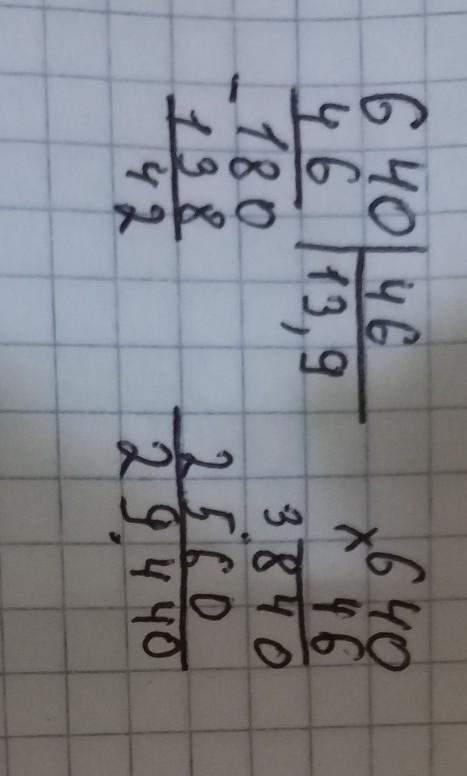 640 | 46
46 13,9
- 180
138
42
640
x 46
3840
2560
29440